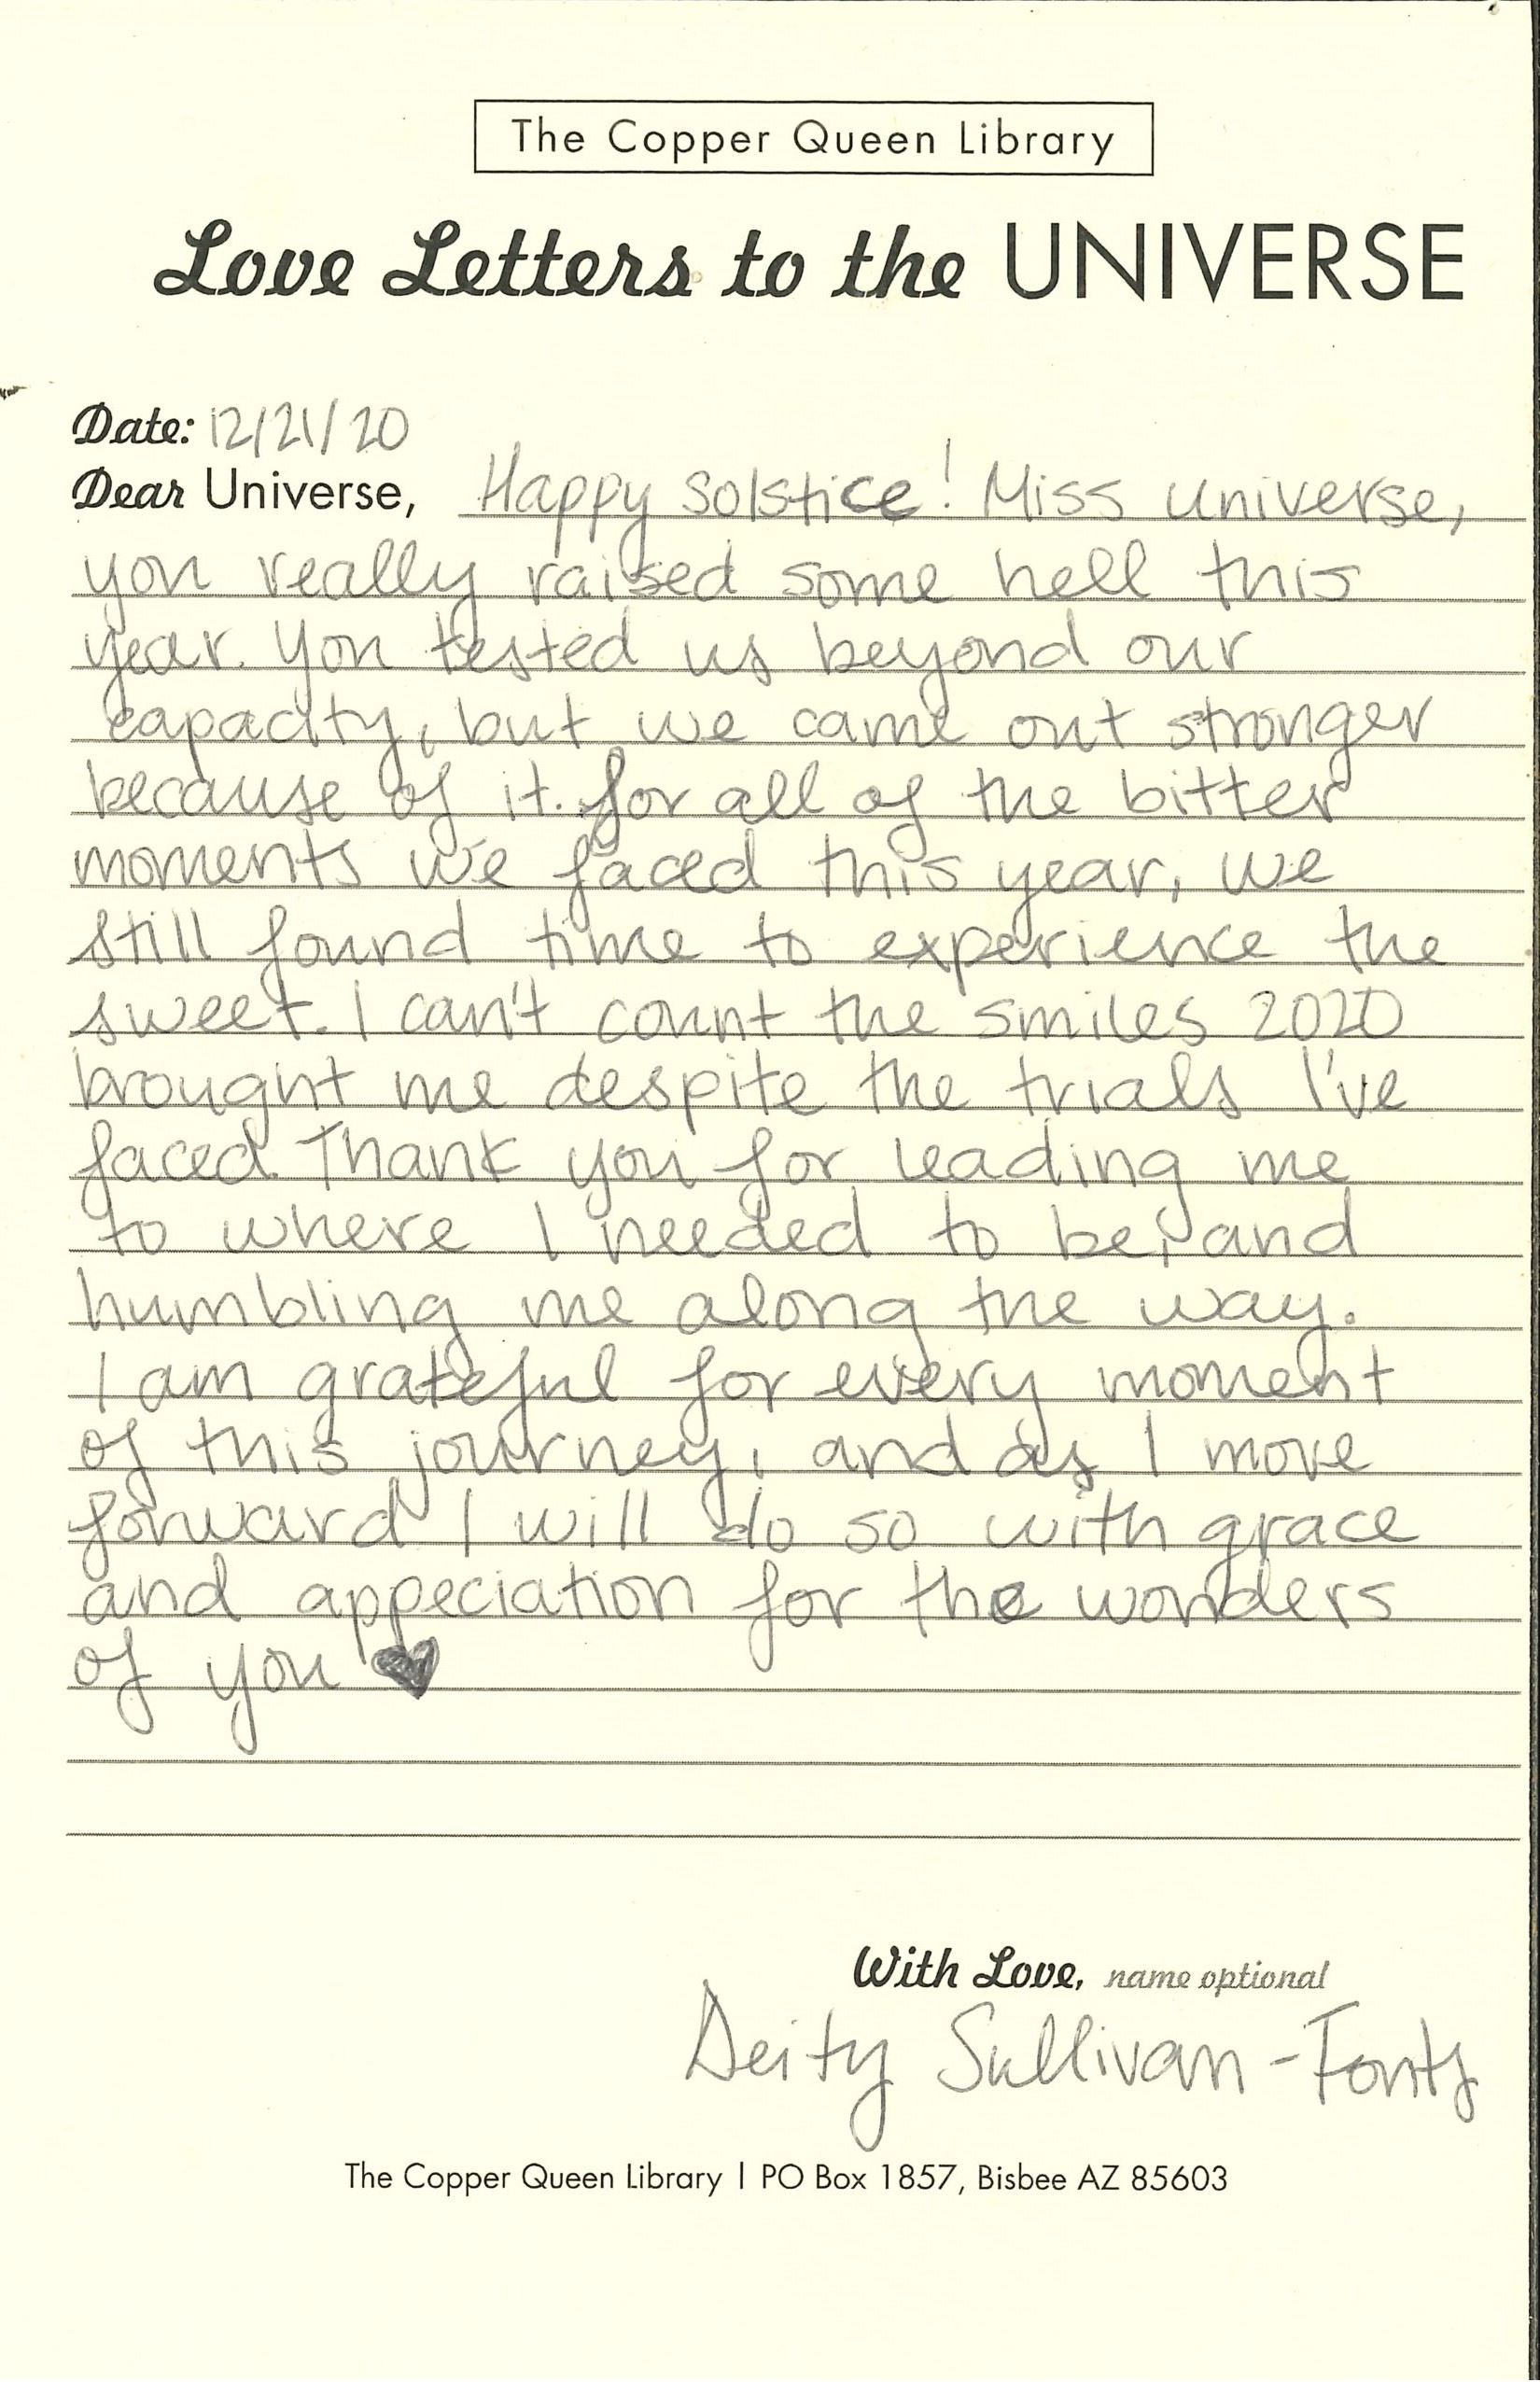 The Copper Queen Library
Love Letters to the UNIVERSE
Date: 12/21/20
Dear Universe, Happy Solstice! Miss Universe,
you really raised some hell this
year. You tested us beyond our
capacity, but we came out stronger
because of it. for all of the bitter
moments we faced this year, we
still found time to experience the
sweet. I can't count the smiles 2020
brought me despite the trials I've
faced. Thank you for leading me
to where I needed to be, and
humbling me along the way.
I am grateful for every moment
of this journey, and as I move
forward I will do so with grace
and appeciation for the wonders
of you ♥
With Love, name optional
Deity Sullivan-Fonts
The Copper Queen Library | PO Box 1857, Bisbee AZ 85603